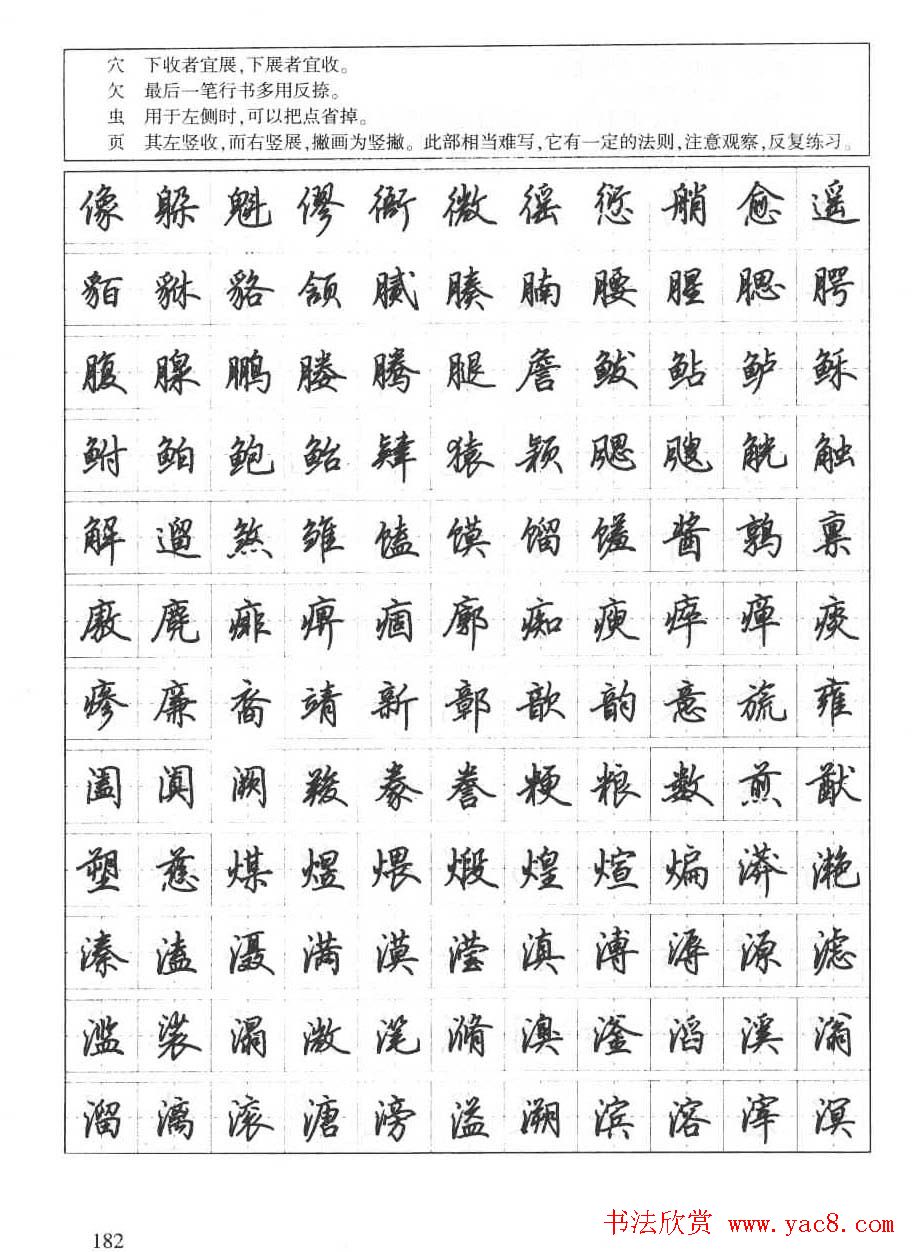 穴 下收者宜展,下展者宜收。
欠 最后一笔行书多用反捺。
虫 用于左侧时,可以把点省掉。
页 其左竖收,而右竖展,撇画为竖撇。此部相当难写,它有一定的法则,注意观察,反复练习。
像 躲 魁 僇 衙 微 徭 愆 艄 愈 遥
貊 貅 貉 颔 腻 腠 腩 腰 腥 腮 腭
腹 腺 鹏 塍 腾 腿 詹 鲅 鲇 鲈 稣
鲋 鲌 鲍 鲐 肄 猿 颖 飔 飕 觥 触
解 遛 煞 雏 馌 馍 馏 馐 酱 鹑 禀
廒 麂 痱 痹 痼 廓 痴 痿 瘁 瘅 痰
瘆 廉 裔 靖 新 鄣 歆 韵 意 旒 雍
阖 阗 阙 羧 豢 誊 粳 粮 数 煎 猷
塑 慈 煤 煜 煨 煅 煌 煊 煸 漭 滟
溱 溘 滠 满 漠 滢 滇 溥 溽 源 滤
滥 裟 溻 溦 滗 滫 澳 滏 滔 溪 滃
溜 漓 滚 溏 滂 溢 溯 滨 溶 滓 溟
182
书法欣赏 www.yac8.com